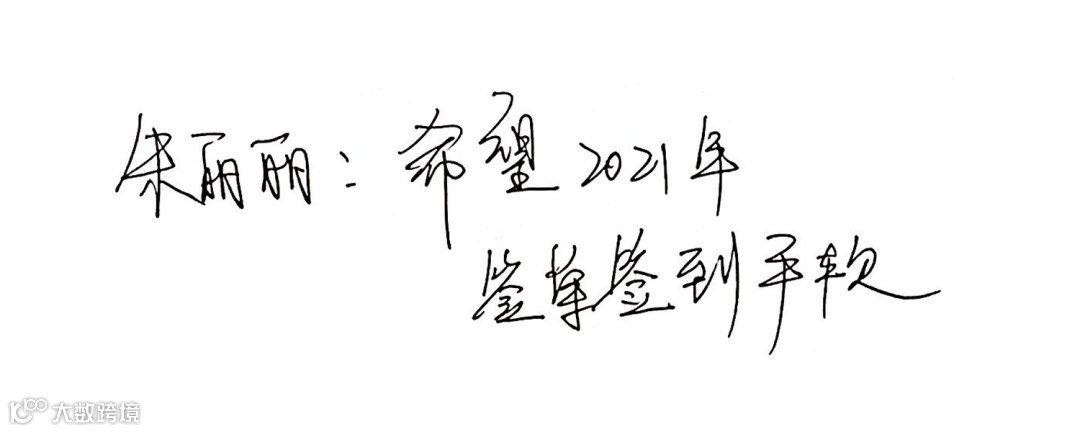 朱丽丽：希望2021年
签单签到手软
大数跨境